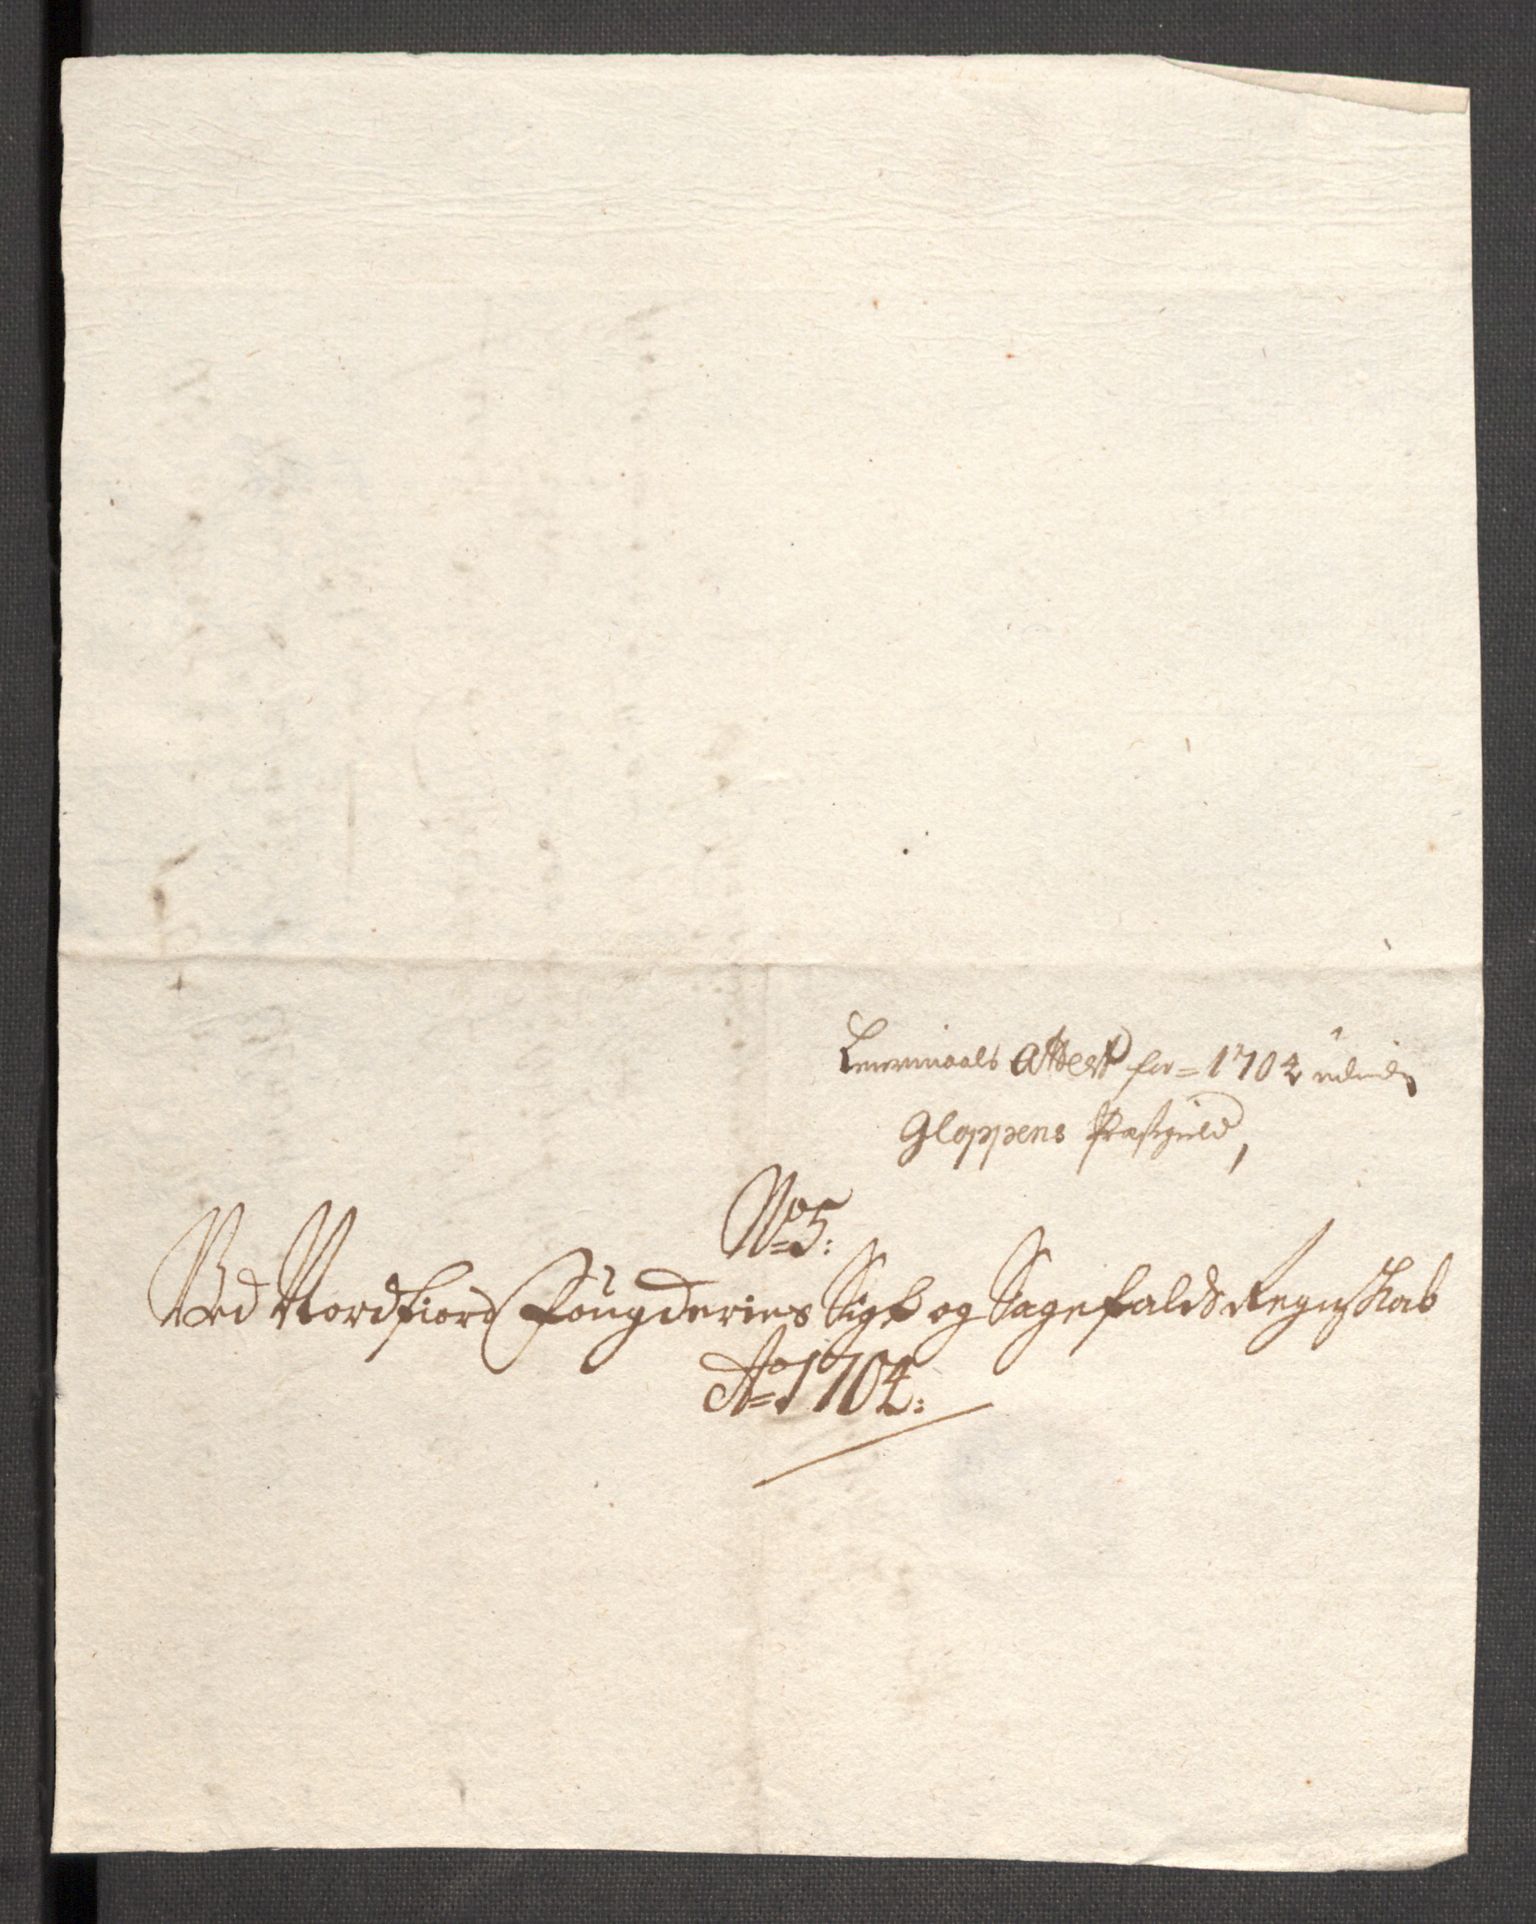 Leyermaals Attest for = 1704 udinde
Gloppens Præstgield,
No 5:
Ved Nordfiord Fougderies Sigt og Sagefalds Regnskab
Ao 1704: